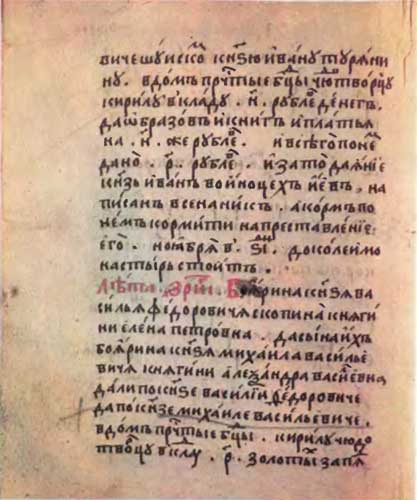 вичешуискѡ кнѕю ивану туряни
ну. вдомъ прчⷭтые бцⷣы чюⷣтворцу
кирилу вкладу .н҃. рублеⷡ денегъ.
даѡбразовъ икнигъ иплатья
на .н҃. же рублеⷡ. ивсѣгѡ понеⷨ
дано .р҃. рублеⷡ. изатодаяніе
кнѕь иванъ воиноцехъ ,на
писанъ всенаникъ. акормъ по
немъ кормити напреставленіе
его. ноября в. доколе имо
настырь стоитъ.
Лѣта .зрⷦі. Боярина кнѕя ва
силья ѳедоровичя скопина княги
ни елена петровна. дасына ихъ
боярина кнѕя михаила василье
вичя княгини алеѯандра василевна
дали покнѕе василіи ѳедоровиче
дапокнѕе михаиле васильевиче.
вдомъ прчⷭтые бцⷣы. кирилу чюдо
творцу вклаⷣ .р҃. золотыⷯ запяⷮ